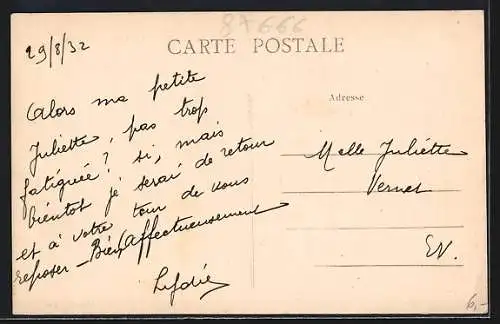 87666
29/8/32
CARTE POSTALE
Alors ma petite
Juliette, pas trop
fatiguée? si, mais
bientot je serai de retour
et à votre tour de vous
reposer - Bien affectueusement
Lydie
Adresse
Melle Juliette
Vernet
EV.
6,-